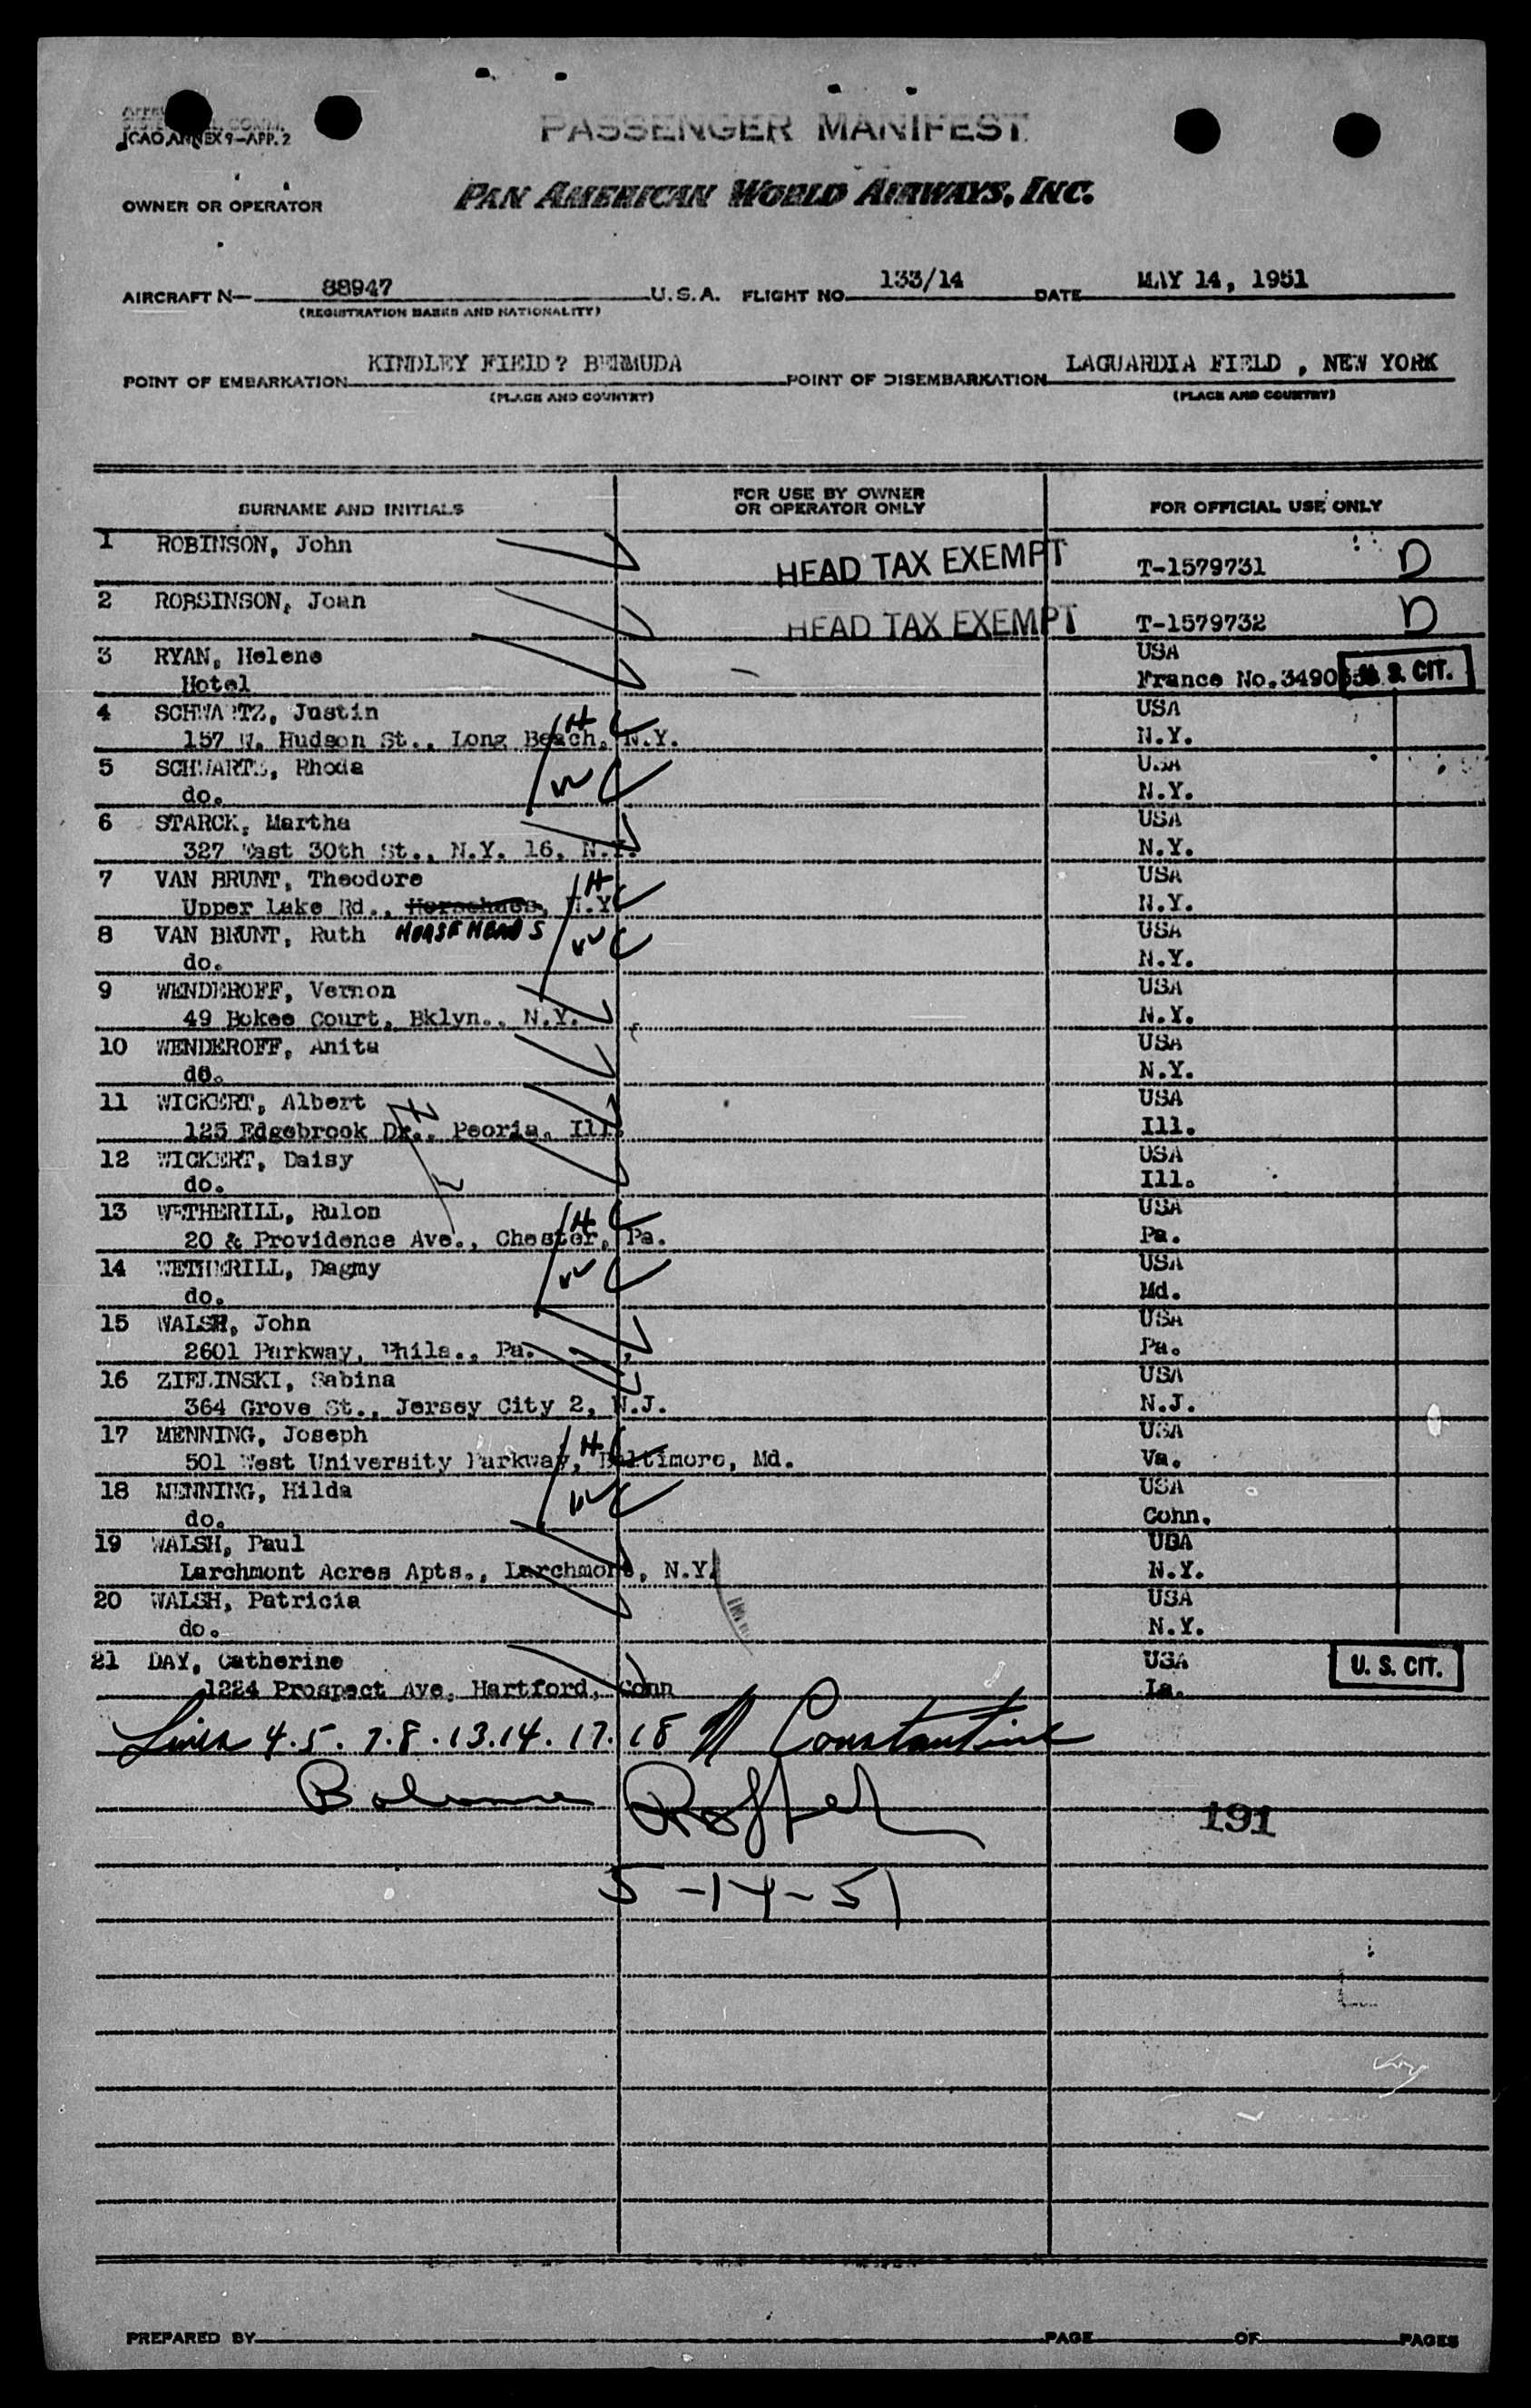 ICAO ANNEX 9—APP. 2
PASSENGER MANIFEST
OWNER OR OPERATOR PAN AMERICAN WORLD AIRWAYS, INC.
AIRCRAFT N— 88947 U.S.A. FLIGHT NO. 133/14 DATE MAY 14, 1951
(REGISTRATION MARKS AND NATIONALITY)
POINT OF EMBARKATION KINDLEY FIELD? BERMUDA POINT OF DISEMBARKATION LAGUARDIA FIELD , NEW YORK
(PLACE AND COUNTRY) (PLACE AND COUNTRY)
SURNAME AND INITIALS FOR USE BY OWNER OR OPERATOR ONLY FOR OFFICIAL USE ONLY
1 ROBINSON, John HEAD TAX EXEMPT T-1579731 D
2 ROBSINSON, Joan HEAD TAX EXEMPT T-1579732 D
3 RYAN, Helene USA
Hotel France No. U. S. CIT.
4 SCHWARTZ, Justin H USA
157 W. Hudson St., Long Beach, N.Y. N.Y.
5 SCHWARTZ, Rhoda W USA
do. N.Y.
6 STARCK, Martha USA
327 East 30th St., N.Y. 16, N.Y. N.Y.
7 VAN BRUNT, Theodore H USA
Upper Lake Rd., N.Y. N.Y.
8 VAN BRUNT, Ruth HORSEHEADS W USA
do. N.Y.
9 WENDEROFF, Vernon USA
49 Bokee Court, Bklyn., N.Y. N.Y.
10 WENDEROFF, Anita USA
do. N.Y.
11 WICKERT, Albert H USA
125 Edgebrook Dr., Peoria, Ill. Ill.
12 WICKERT, Daisy USA
do. Ill.
13 WETHERILL, Rulon H USA
20 & Providence Ave., Chester, Pa. Pa.
14 WETHERILL, Dagmy W USA
do. Md.
15 WALSH, John USA
2601 Parkway, Phila., Pa. Pa.
16 ZIELINSKI, Sabina USA
364 Grove St., Jersey City 2, N.J. N.J.
17 MENNING, Joseph H USA
501 West University Parkway, Baltimore, Md. Va.
18 MENNING, Hilda W USA
do. Conn.
19 WALSH, Paul USA
Larchmont Acres Apts., Larchmont, N.Y. N.Y.
20 WALSH, Patricia USA
do. N.Y.
21 DAY, Catherine USA U. S. CIT.
1224 Prospect Ave, Hartford, Conn Ia.
Lines 4.5. 7.8. 13.14. 17.18 Constantine
Balance
191
5-14-51
PREPARED BY PAGE OF PAGES